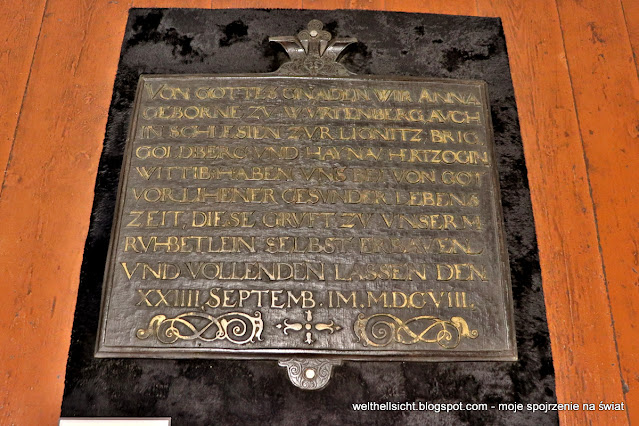 VON GOTTES GNADEN WIR ANNA
GEBORNE ZV WVRTENBERG AVCH
IN SCHLESIEN ZVR LIGNITZ, BRIG,
GOLDBERG VND HAYNAV HERTZOGIN
WITTIB HABEN VNS BEI VON GOT
VORLIHENER GESVNDER LEBENS
ZEIT, DIESE GRVFT ZV VNSERM
RVHBETLEIN SELBST ERBAVEN
VND VOLLENDEN LASSEN DEN
XXIIII, SEPTEMB. IM, M.DCVIII.
welthellsicht.blogspot.com - moje spojrzenie na świat